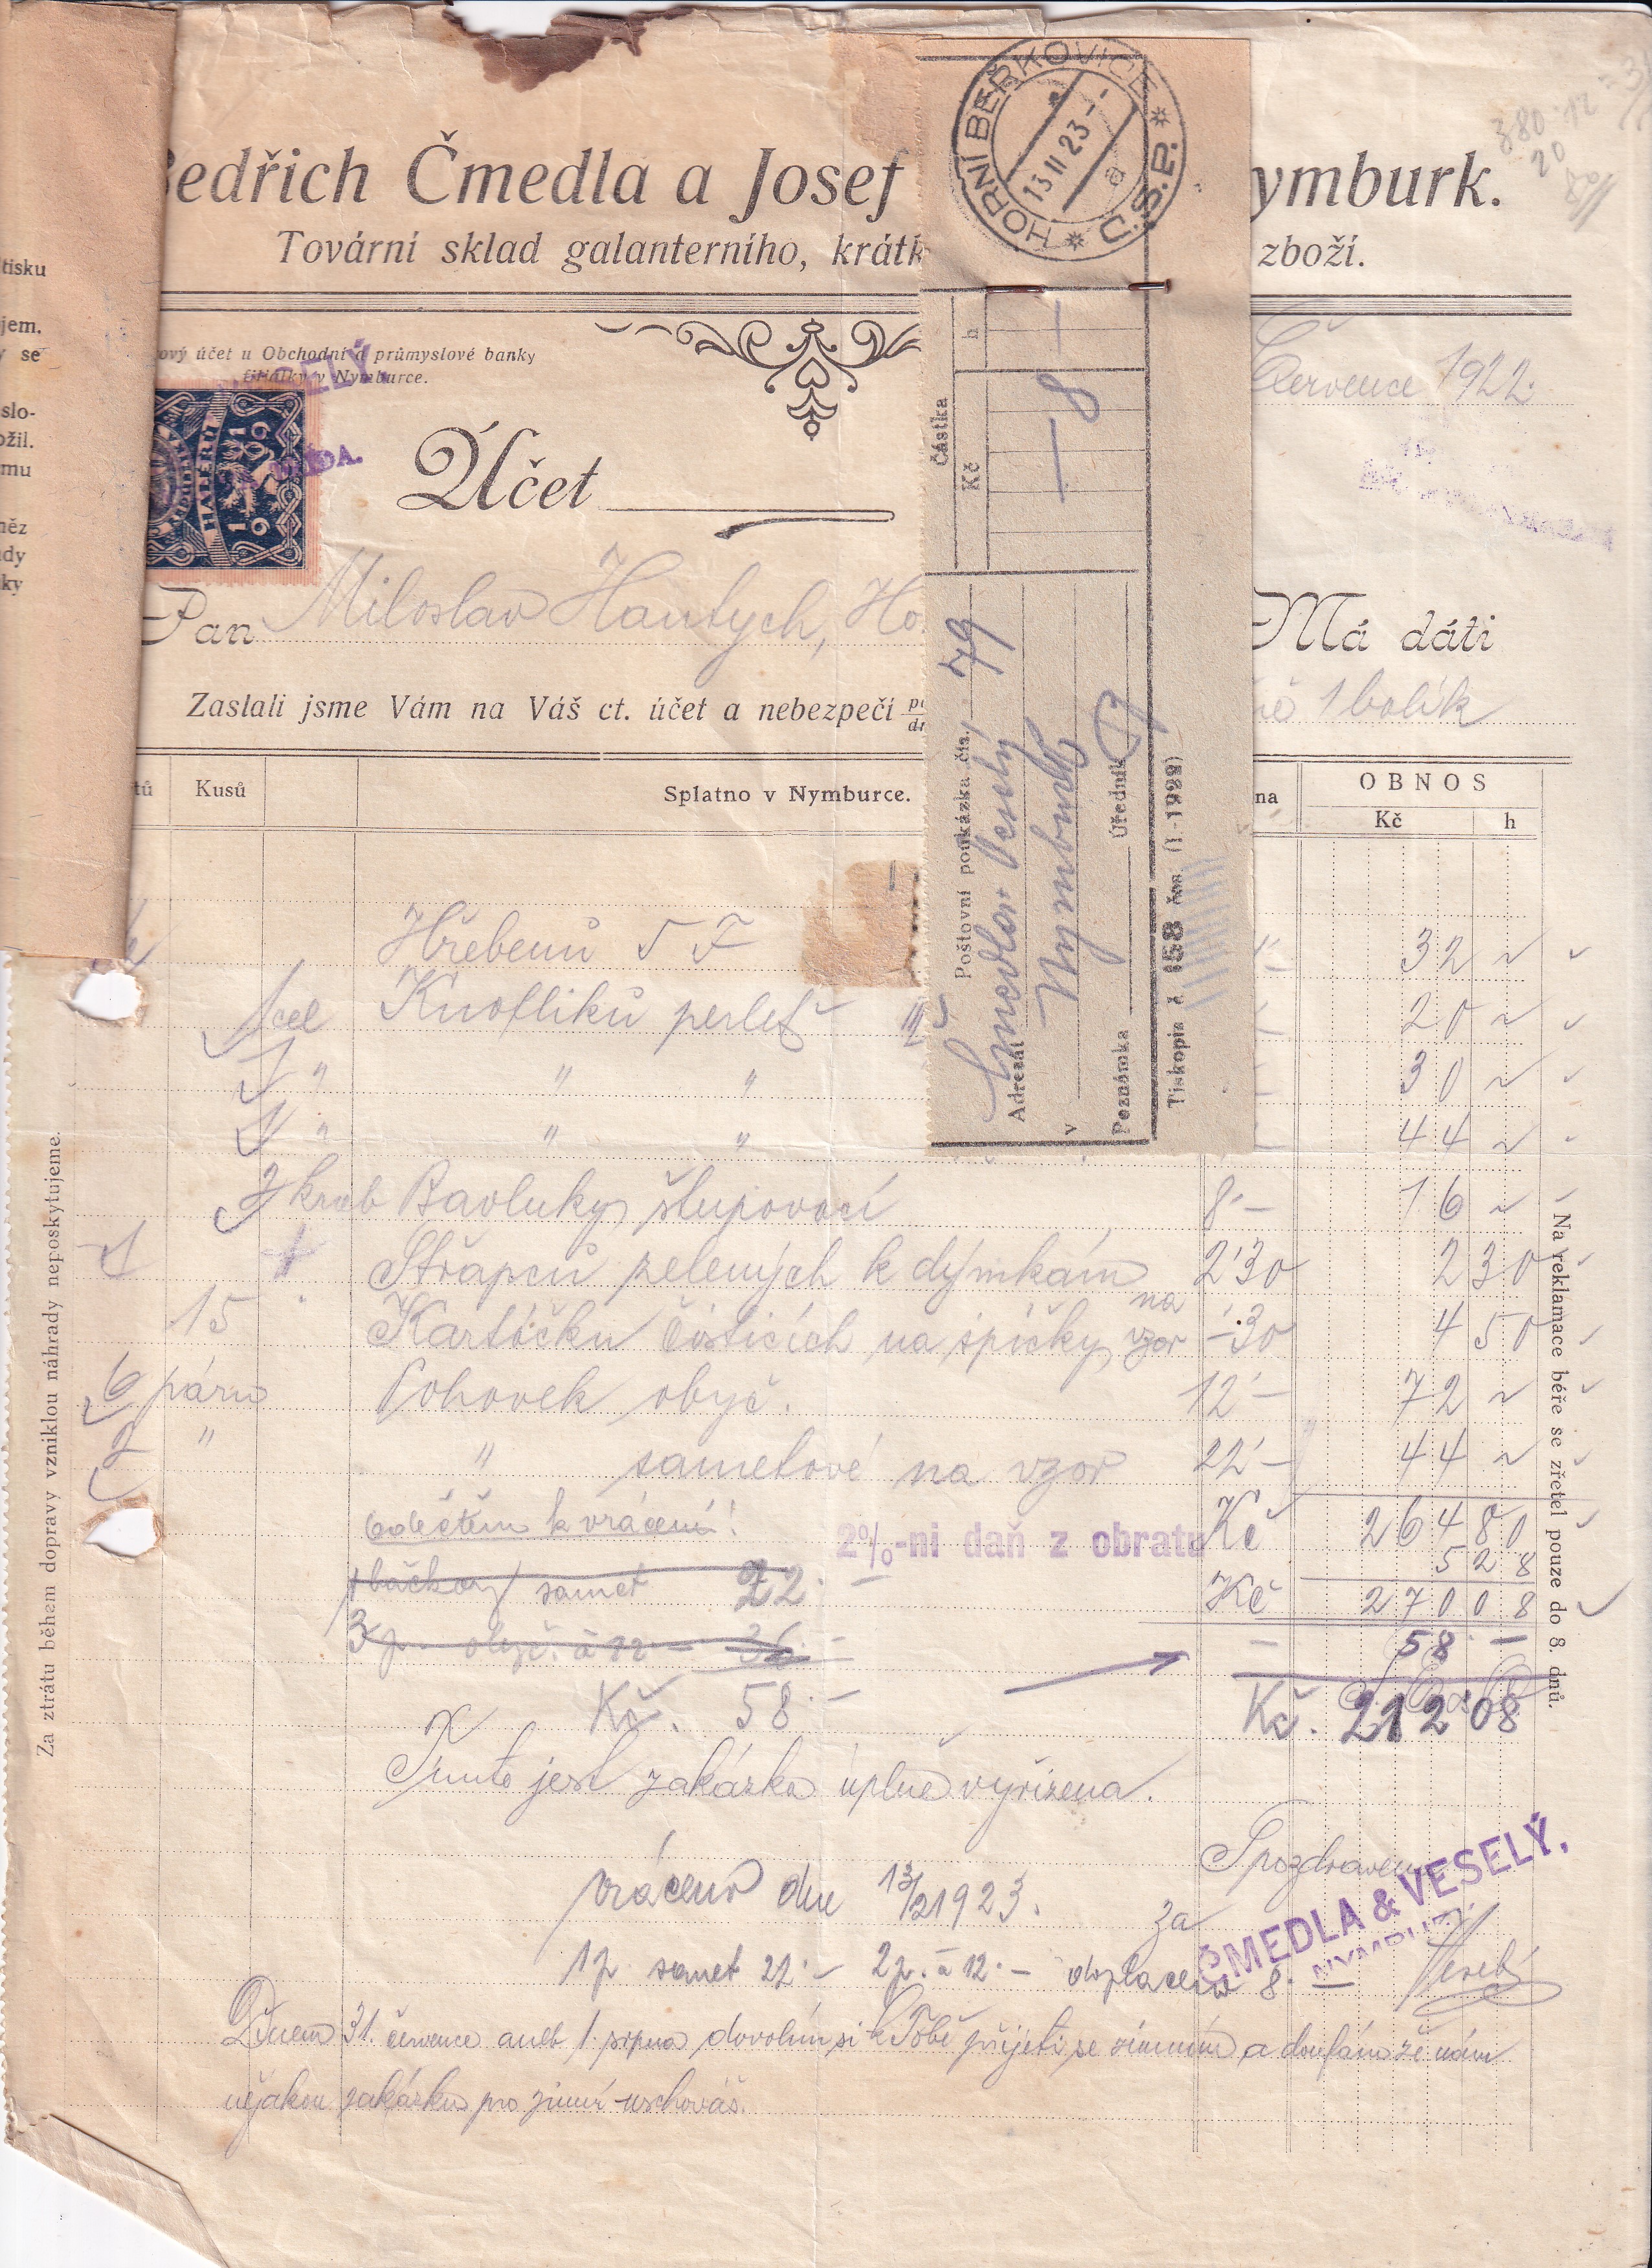 edřich Čmedla a Josef
ymburk.
Tovární sklad galanterního, krátk
zboží.
tisku
jem.
se
slo-
ožil.
mu
něz
dy
ky
ový účet u Obchodní a průmyslové banky
filiálky v Nymburce.
VESELÝ,
Července 1922.
HALÉŘŮ
1919
Účet
HORNÍ BEŘKOVICE
Č.S.P.
13 II 23
a
Částka
Kč
h
— 8 —
Poštovní poukázka čís. 79
Adresát Čmedla + Veselý
v Nymburk
Poznámka
Úředník
Tiskopis č. 158 čes. (I.-1922)
Pan Miloslav Hantych, Ho
Má dáti
Zaslali jsme Vám na Váš ct. účet a nebezpečí
1 balík
tů
Kusů
Splatno v Nymburce.
na
OBNOS
Kč
h
Hřebenů 32 ~
1 cel Knoflíků perleť 20 ~
1 " " " 30 ~
1 " " " 44 ~
2 krab Bavlnky štupovací 8·— 16 ~
1 Střapců zelených k dýmkám 2·30 2 30
15 Kartáčků čistících na špičky na vzor —·30 4 50
6 párů Pohovek obyč. 12·— 72 ~
2 " " sametové na vzor 22·— 44 ~
2%-ni daň z obratu
Kč 264 80
5 28
Kč 270 08
k vrácení!
1 samet 22·—
3 p. obyč. à 12·— 36·—
Kč. 58·—
— 58·—
Kč. 212·08
Tímto jest zakázka úplně vyřízena.
S pozdravem
za
ČMEDLA & VESELÝ,
NYMBURK
Veselý
vráceno dne 13/2 1923.
1 p. samet 22·— 2 p. à 12·— doplaceno 8·—
Dnem 31. července aneb 1. srpna dovolím si k Tobě přijeti se zimním a doufám že nám
nějakou zakázku pro zimu uschováš.
Za ztrátu během dopravy vzniklou náhrady neposkytujeme.
Na reklamace béře se zřetel pouze do 8. dnů.